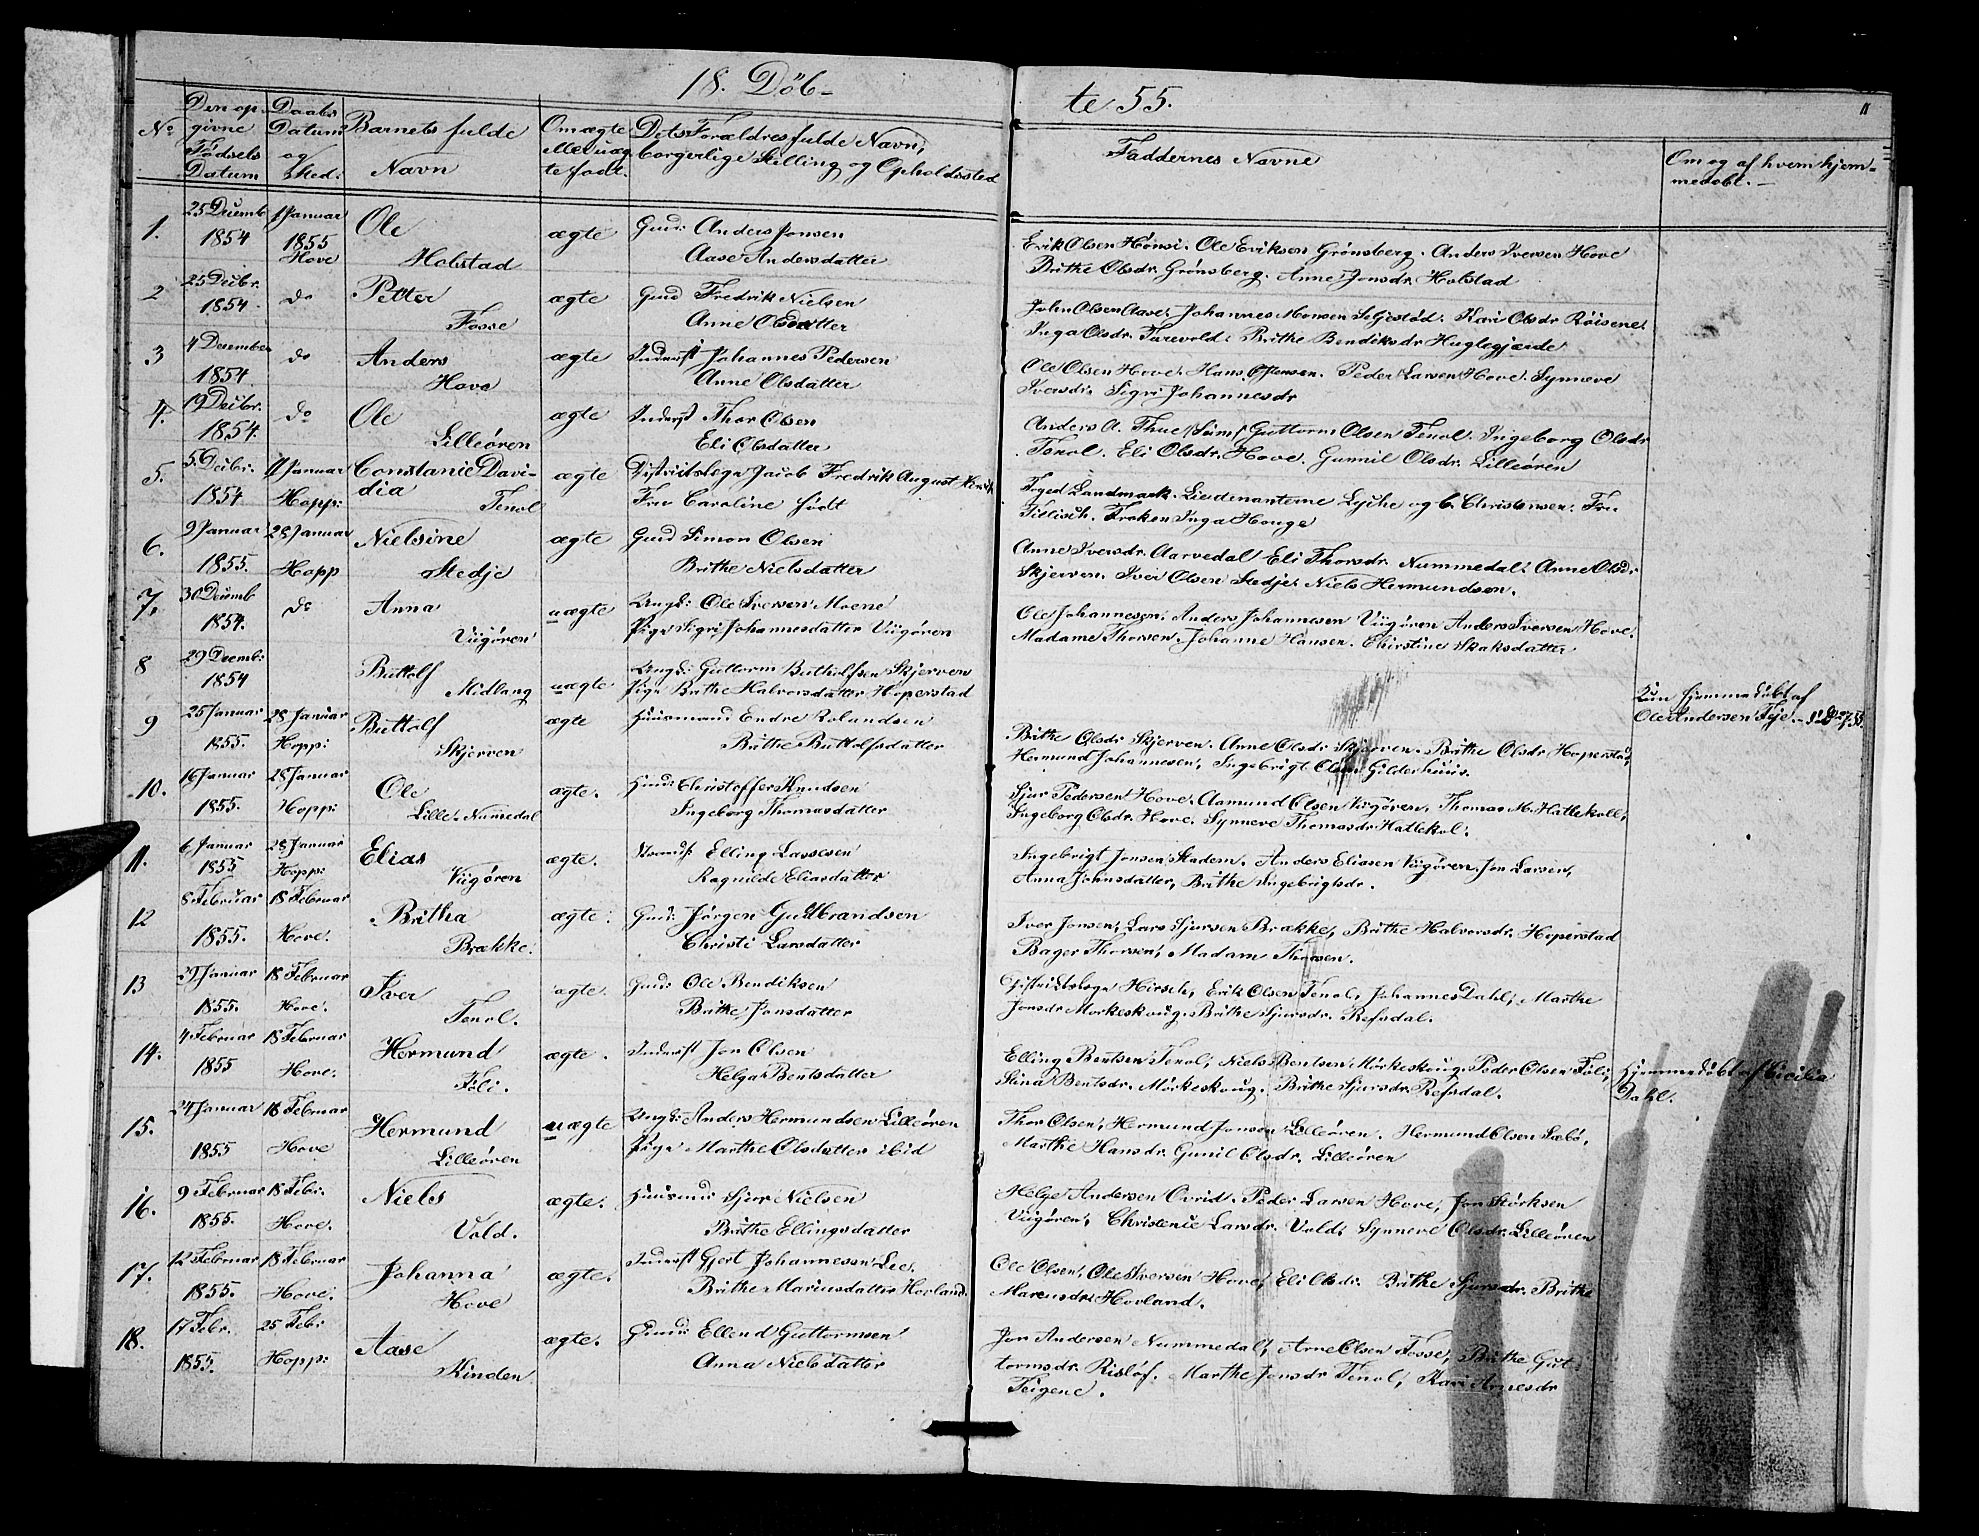 18. Döb-
te 55.
11
No
Den op-
givne
Fødsels
Datum
Daabs
Datum
og
Sted:
Barnets fulde
Navn
Om ægte
eller uæg
te født.
Dets Forældres fulde Navn,
borgerlige Stilling og Opholdssted
Faddernes Navne
Om og af hvem hjem-
medøbt.-
1. 25 Decemb 1854
1 Januar 1855 Hove
Ole
Holstad
ægte
Gmd: Anders Jonsen
Aase Andersdatter
Erik Olsen Hønsi. Ole Eriksen Grønsberg. Anders Iversen Hove
Brithe Olsdr. Grønsberg. Anne Jonsdr. Holstad
2 25 Decbr. 1854
do
Petter
Fosse
ægte
Gmd Fredrik Nielsen
Anne Olsdatter
John Olsen Aase. Johannes Monsen Seljestød. Kari Olsdr Röisene.
Inga Olsdr. Farevold. Brithe Bendiksdr Huglegjærde
3 4 Desember 1854
do
Anders
Hove
ægte
Inderst Johannes Pedersen
Anne Olsdatter
Ole Olsen Hove. Hans Ottensen. Peder Larsen Hove. Synneve
Iversdr. Sigri Johannesdr
4. 19 Decbr. 1854.
do
Ole
Lilleören
ægte
Inderst Thor Olsen
Eli Olsdatter
Anders A. Thue /Siim/ Guttorm Olsen Tenol. Ingeborg Olsdr
Tenol. Eli Olsdr. Hove. Gunnil Olsdr. Lilleören
5. 5 Decbr. 1854
11 Januar Hopp:
Constanie Davi-
dia
Tenol
ægte
Districtslege Jacob Fredrik August
Fru Caroline født
Foged Landmark. Lieutenanterne Lyche og C. Christensen. Fru
Tillisch. Frøken Inga Houge
6. 9 Januar 1855.
28 Januar Hopp
Nielsine
Stedje
ægte
Gmd Simon Olsen
Brithe Nielsdatter
Anne Iversdr. Aarvedal. Eli Thorsdr. Nummedal. Anne Olsdr.
Skjerven. Iver Olsen Stedje. Niels Hermundsen.
7. 30 Decemb 1854.
do
Anna
Viigören
uægte
Ungk: Ole Iversen Moene
Pige Sigri Johannesdatter Viigören
Ole Johannesen. Anders Johannesen Viigören Anders Iversen Hove.
Madame Thorsen. Johanne Hansen. Christine Skaksdatter
8 29 Decemb: 1854
Buttolf
Midlang
uægte
Ungk: Guttorm Buttolfsen Skjerven
Pige Brithe Halvorsdatter Hoperstad
Kun hjemmedöbt af
Ole Andersen Tje.
9 25 Januar 1855.
28 Januar Hopp:
Buttolf
Skjerven
ægte
Huusmand Endre Rolandsen
Brithe Buttolfsdatter
Brithe Olsdr Skjerven. Anne Olsdr Skjerven. Brithe Olsdr Hoperstad,
Hermund Johannesen, Ingebrigt Olsen Gilderhuus.
10. 16 Januar 1855.
28 Januar Hopp:
Ole
Lille-Numedal
ægte.
Huus: Christoffer Knudsen
Ingeborg Thomasdatter
Sjur Pedersen Hove. Aamund Olsen Viigören, Thomas M. Hatlekoll,
Ingeborg Olsdr. Hove. Synneve Thomasdr. Hatlekol.
11. 6 Januar 1855
28 Januar Hopp:
Elias
Viigören
ægte.
Strands: Elling Lassesen
Ragnilde Eliasdatter
Ingebrigt Jonsen Stadem. Anders Eliasen Viigören. Jon Larsen,
Anna Johnsdatter, Brithe Ingebrigtsdr.
12 8 Februar 1855.
18 Februar Hove.
Britha
Brække.
ægte.
Gmd: Jørgen Gudbrandsen
Christi Larsdatter
Iver Jonsen, Lars Sjursen Brække, Brithe Halvorsdr. Hoperstad
Bager Thorsen, Madam Thorsen.
13 29 Januar 1855.
18 Februar Hove.
Iver
Tenol.
ægte.
Gmd: Ole Bendiksen
Brithe Jonsdatter
Distriktslege Hirsch, Erik Olsen Tenol, Johannes Dahl, Marthe
Jonsdr Morkeskoug. Brithe Sjursdr. Refsdal.
14. 4 Februar 1855
18 Februar Hove.
Hermund
Föli.
ægte.
Inderst Jon Olsen
Helga Bentsdatter
Elling Bentsen Tenol, Niels Bentsen Mörkeskoug. Peder Olsen Föli,
Stina Bentsdr. Mörkeskoug. Brithe Sjursdr. Refsdal.
Hjemmedöbt af Cicilia
Dahl.
15. 24 Januar 1855
18 Februar Hove
Hermund
Lilleören
uægte
Ungk: Anders Hermundsen Lilleören
Pige Marthe Olsdatter ibid
Thor Olsen, Hermund Jonsen Lilleören. Hermund Olsen Sæbö,
Marthe Hansdr. Gunil Olsdr. Lilleören
16. 9 Februar 1855.
18 Febr. Hove.
Niels
Vold.
ægte.
Huusmd: Sjur Nielsen
Brithe Ellingsdatter
Helge Andersen Ovrid. Peder Larsen Hove, Jon Störksen
Viigören, Christense Larsdr. Vold. Synneve Olsdr. Lilleören
17. 12 Februar 1855.
18 Februar Hove.
Johanna
Hove
ægte.
Inderst Gjert Johannessen Lie.
Brithe Mariusdatter Hovland.
Ole Olsen, Ole Iversen Hove, Eli Olsdr. Brithe Sjursdr. Brithe
Mareusdr Hovland.
18. 17 Febr. 1855.
25 Febr Hopp:
Aase
Kinden
ægte.
Huus: Ellend Guttormsen
Anna Nielsdatter
Jon Andersen Nummedal, Arne Olsen Fosse, Brithe Gut
tormsdr. Risløf. Marthe Jonsdr Tenol, Kari Arnesdr
Teigene.